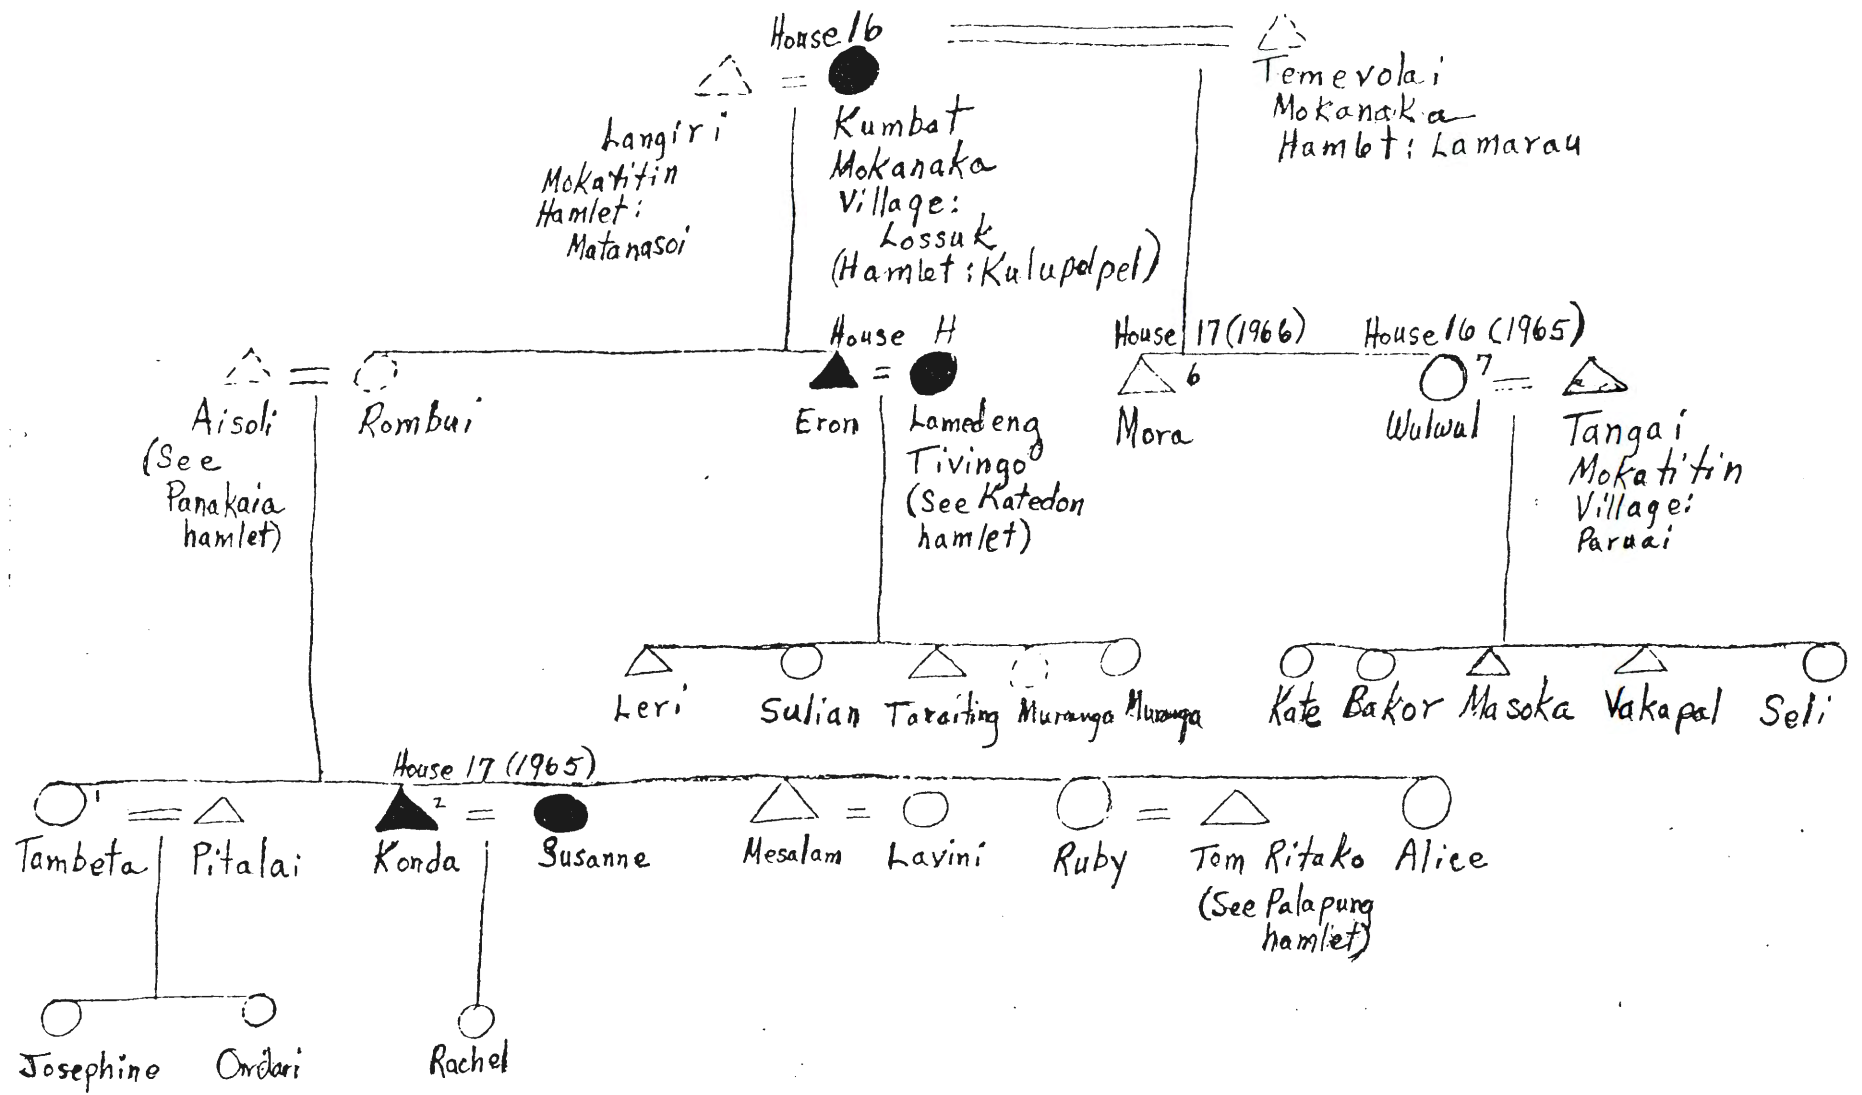 House 16
Temevolai
Mokanaka
Hamlet: Lamarau
Langiri
Mokatitin
Hamlet:
Matanasoi
Kumbat
Mokanaka
Village:
Lossuk
(Hamlet: Kulupolpel)
House H
House 17 (1966)
House 16 (1965)
6
7
Aisoli
(See
Panakaia
hamlet)
Rombui
Eron
Lamedeng
Tivingo
(See Katedon
hamlet)
Mora
Wulwul
Tangai
Mokatitin
Village:
Paruai
Leri
Sulian
Taraiting
Muranga
Muranga
Kate
Bakor
Masoka
Vakapal
Seli
House 17 (1965)
1
2
Tambeta
Pitalai
Konda
Susanne
Mesalam
Lavini
Ruby
Tom Ritako
(See Palapung
hamlet)
Alice
Josephine
Ondari
Rachel